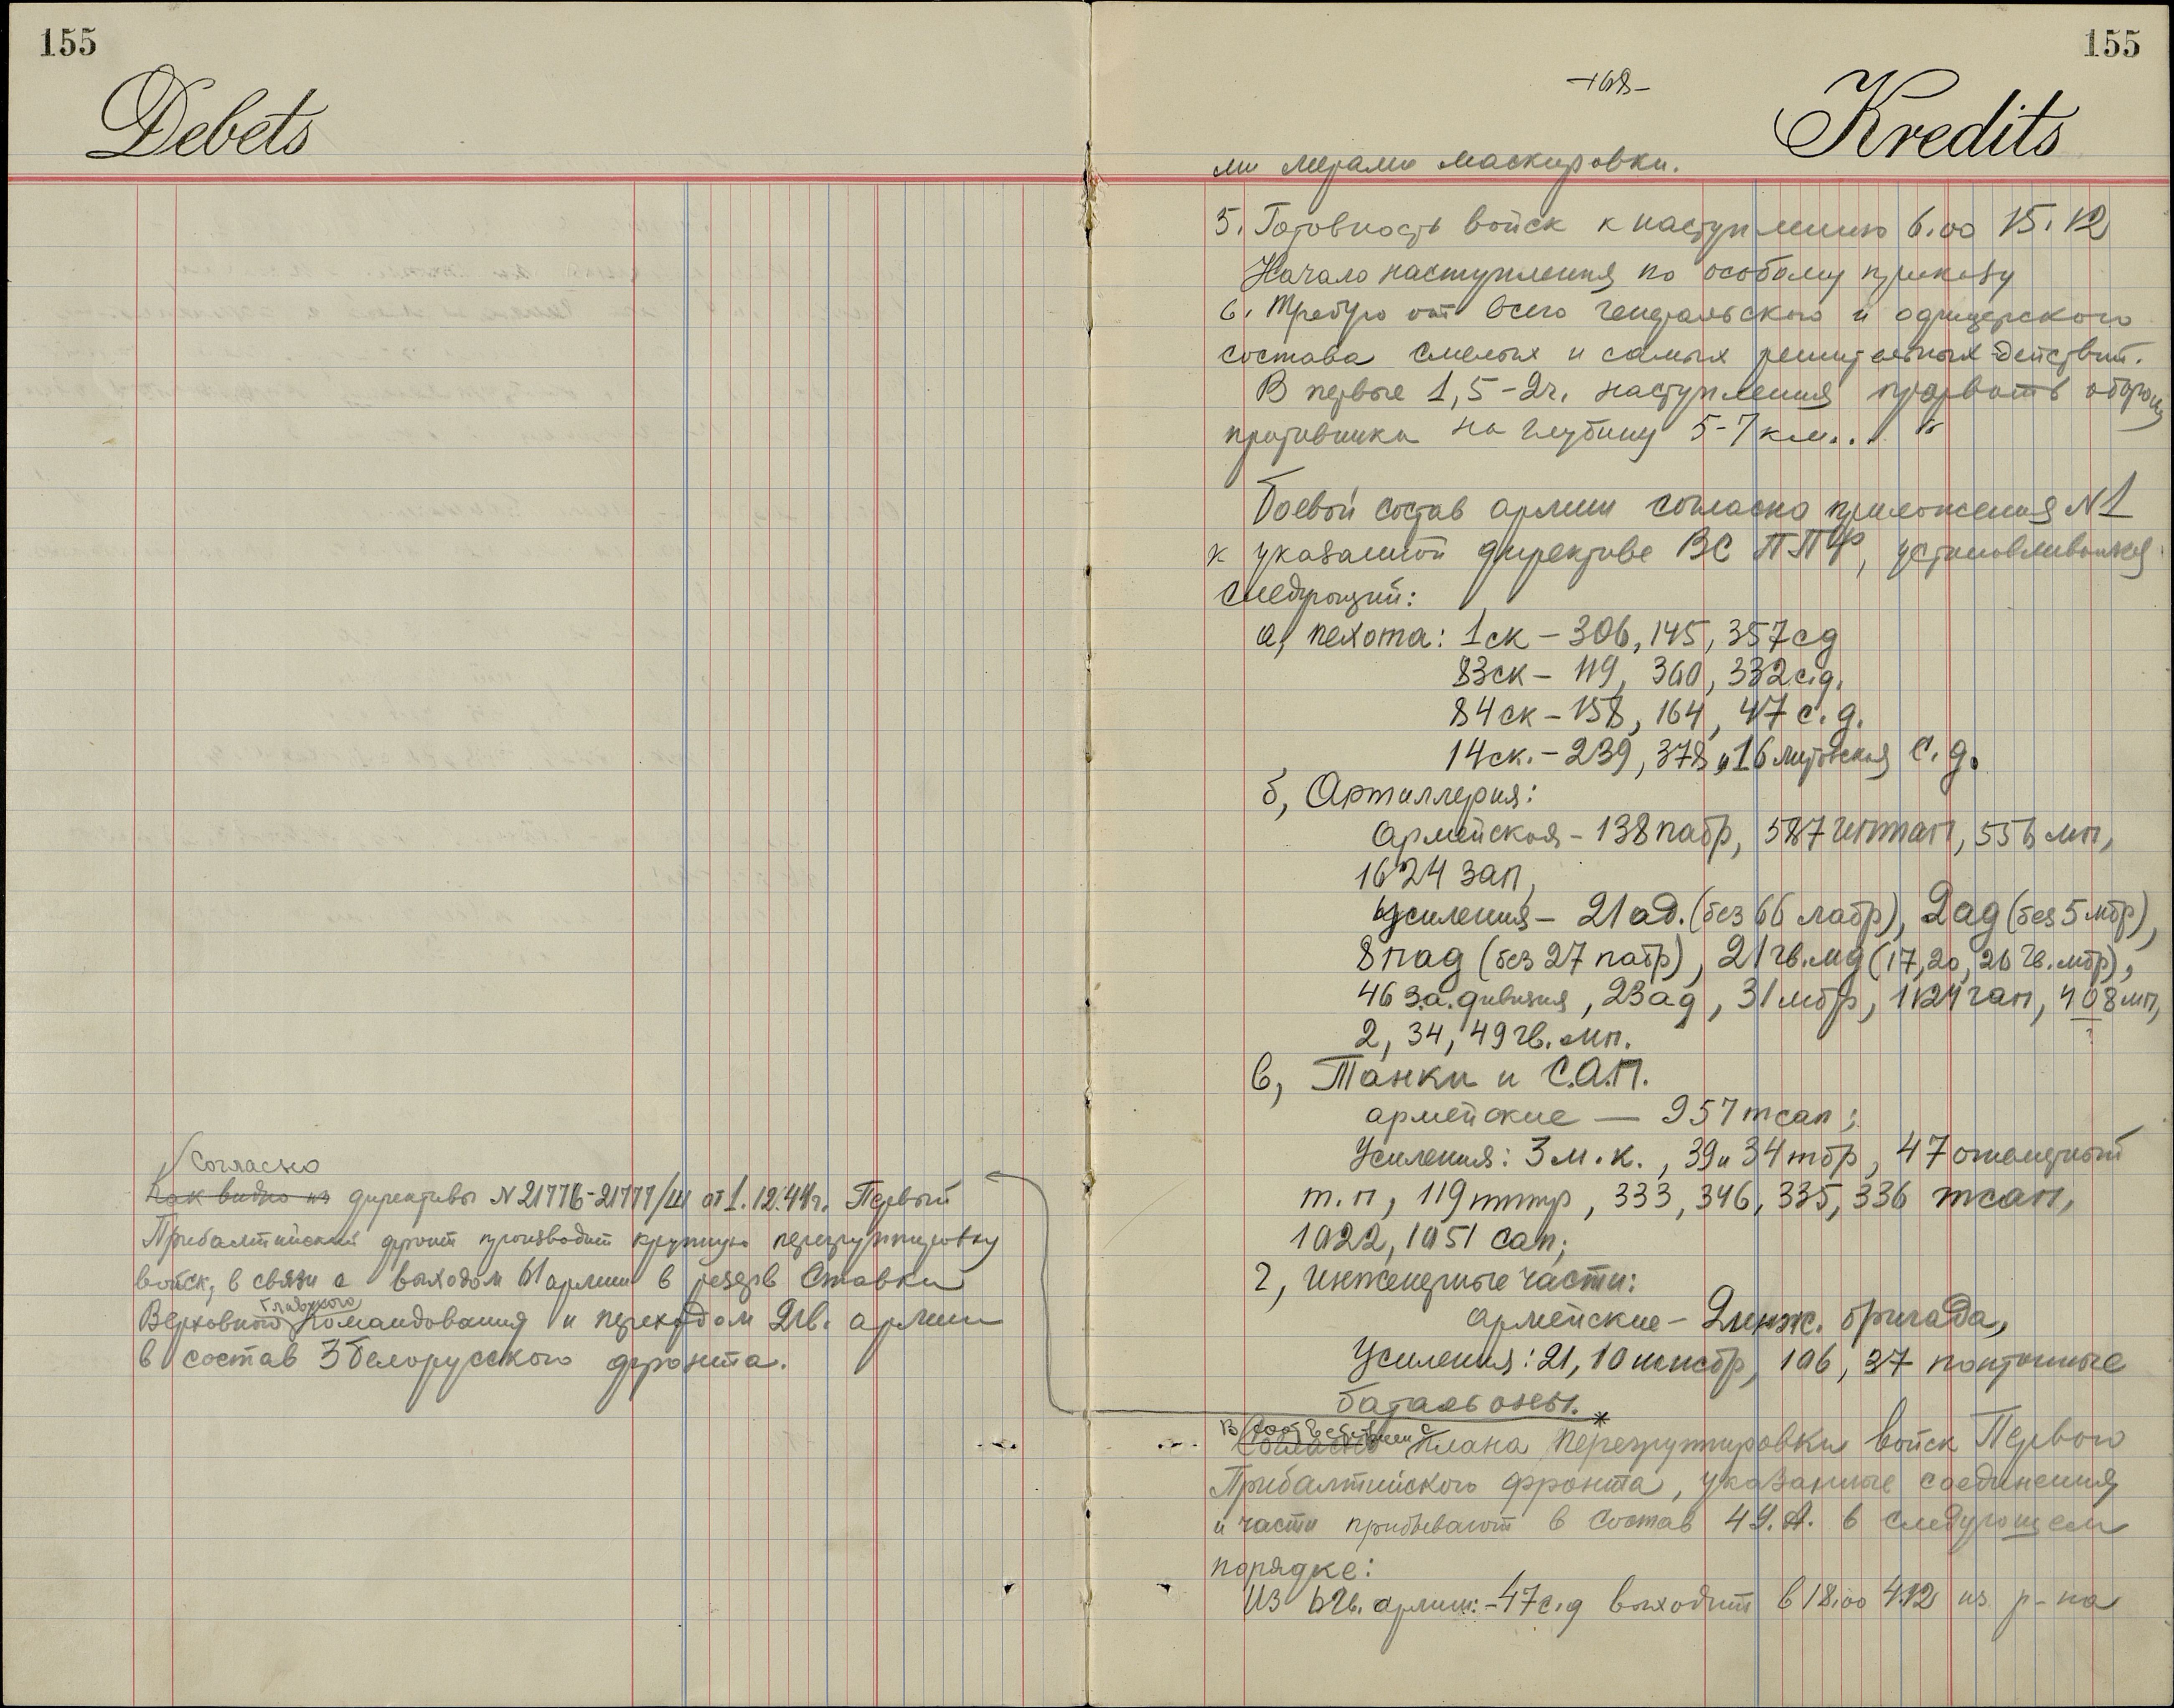 155
Debets
Согласно
Как видно из директивы N 21776-21777/ш от 1.12.44г. Первый
Прибалтийский фронт производит крупную перегруппировку
войск, в связи с выходом 61 армии в резерв Ставки
Главного
Верховного Командования и переходом 2 гв. армии
в состав 3 Белорусского фронта.
155
-168-
Kredits
ми мерами маскировки.
5. Готовность войск к наступлению 6.00 15.12
Начало наступления по особому приказу
6. Требую от всего генеральского и офицерского
состава смелых и самых решительных действий.
В первые 1,5-2ч. наступления прорвать оборону
противника на глубину 5-7 км... "
Боевой состав армии согласно приложения N 1
к указанной директиве ВС ППФ, устанавливался
следующий:
а, пехота: 1 ск - 306, 145, 357 сд
83 ск - 119, 360, 332 с.д.
84 ск - 158, 164, 47 с.д.
14 ск. - 239, 378 и 16 литовская с.д.
б, Артиллерия:
Армейская - 138 пабр, 587 иптап, 556 мп,
1624 зап,
Усиления - 21 ад. (без 66 лабр), 2 ад (без 5 мбр),
8 пад (без 27 пабр), 21 гв. мд (17, 20, 26 гв. мбр),
46 з.а. дивизия, 23 ад, 31 мбр, 1124 гап, 408 мп,
?
2, 34, 49 гв. мп.
в, Танки и С.А.П.
армейские — 957 тсап;
Усиления: 3 м.к., 39 и 34 тбр, 47 огнеметный
т.п, 119 тттр, 333, 346, 335, 336 тсап,
1022, 1051 сап;
г, Инженерные части:
армейские - 2 инж. бригада,
Усиления: 21, 10 шисбр, 106, 37 понтонные
батальоны. *
В соответствии с
Согласно плана перегруппировки войск Первого
Прибалтийского фронта, указанные соединения
и части прибывают в состав 4 У.А. в следующем
порядке:
Из 6 гв. армии: - 47 с.д выходит в 18.00 4.12 из р-на